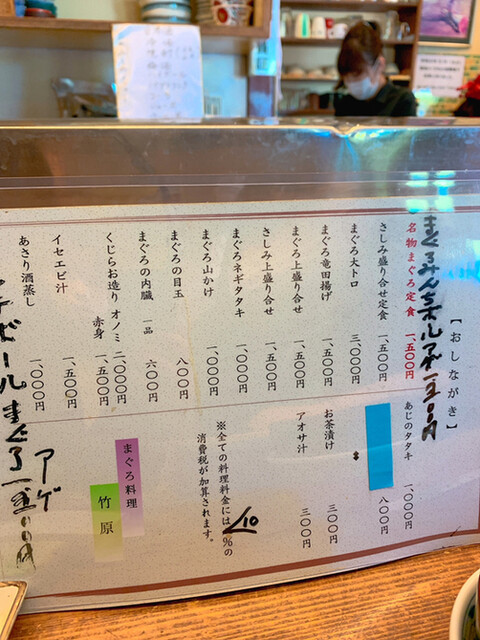 【おしながき】
名物まぐろ定食 一、五〇〇円
さしみ盛り合せ定食 一、五〇〇円
まぐろ大トロ 三、〇〇〇円
まぐろ竜田揚げ 一、五〇〇円
まぐろ上盛り合せ 一、五〇〇円
さしみ上盛り合せ 一、五〇〇円
まぐろネギタタキ 一、〇〇〇円
まぐろ山かけ 一、〇〇〇円
まぐろの目玉 八〇〇円
まぐろの内臓 一品 六〇〇円
くじらお造り オノミ 二、〇〇〇円
赤身 一、五〇〇円
イセエビ汁 一、五〇〇円
あさり酒蒸し 一、〇〇〇円
あじのタタキ 一、〇〇〇円
八〇〇円
お茶漬け 三〇〇円
アオサ汁 三〇〇円
※全ての料理料金には10%の
消費税が加算されます。
まぐろ料理
竹原